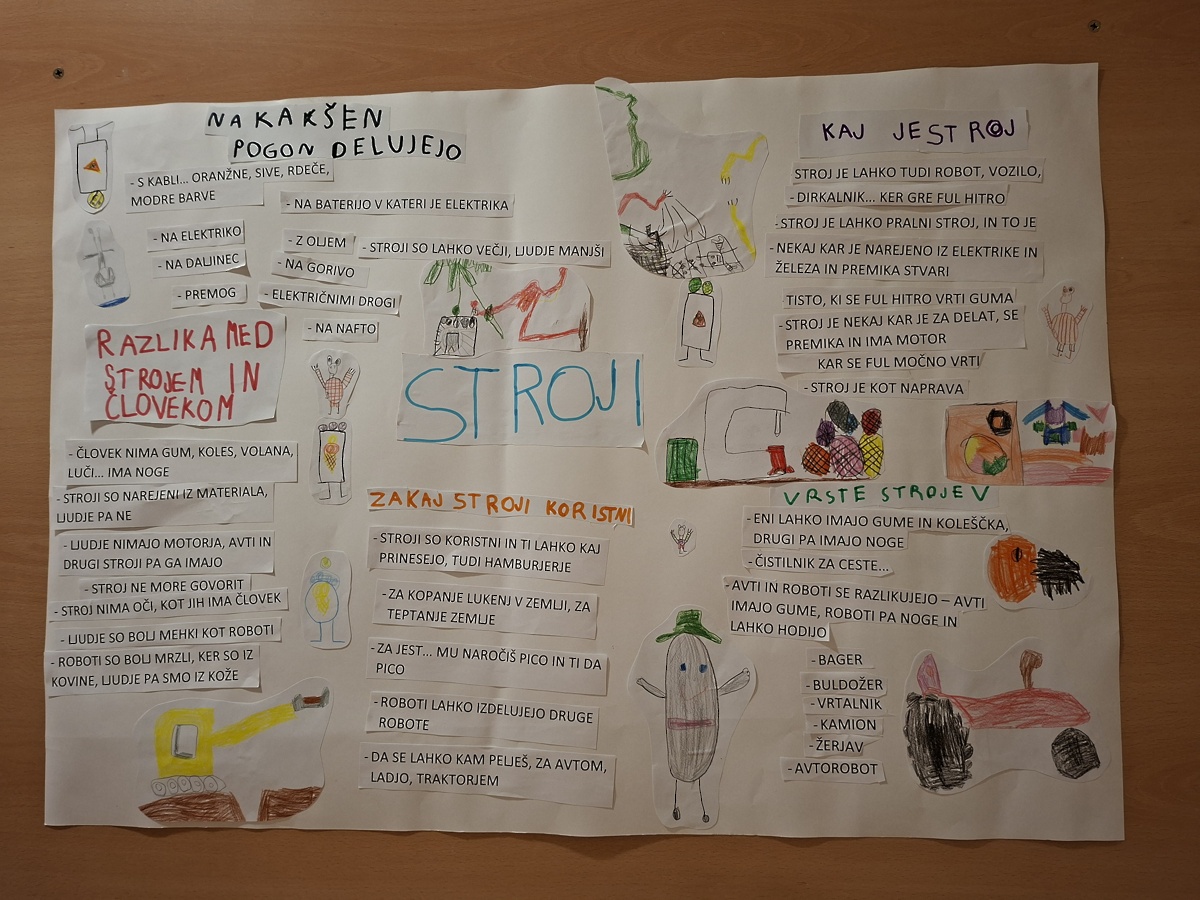 NA KAKŠEN
POGON DELUJEJO
- S KABLI... ORANŽNE, SIVE, RDEČE,
MODRE BARVE
- NA BATERIJO V KATERI JE ELEKTRIKA
- NA ELEKTRIKO
- Z OLJEM
- STROJI SO LAHKO VEČJI, LJUDJE MANJŠI
- NA DALJINEC
- NA GORIVO
- PREMOG
- ELEKTRIČNIMI DROGI
- NA NAFTO
RAZLIKA MED
STROJEM IN
ČLOVEKOM
- ČLOVEK NIMA GUM, KOLES, VOLANA,
LUČI... IMA NOGE
- STROJI SO NAREJENI IZ MATERIALA,
LJUDJE PA NE
- LJUDJE NIMAJO MOTORJA, AVTI IN
DRUGI STROJI PA GA IMAJO
- STROJ NE MORE GOVORIT
- STROJ NIMA OČI, KOT JIH IMA ČLOVEK
- LJUDJE SO BOLJ MEHKI KOT ROBOTI
- ROBOTI SO BOLJ MRZLI, KER SO IZ
KOVINE, LJUDJE PA SMO IZ KOŽE
STROJI
ZAKAJ STROJI KORISTNI
- STROJI SO KORISTNI IN TI LAHKO KAJ
PRINESEJO, TUDI HAMBURJERJE
- ZA KOPANJE LUKENJ V ZEMLJI, ZA
TEPTANJE ZEMLJE
- ZA JEST... MU NAROČIŠ PICO IN TI DA
PICO
- ROBOTI LAHKO IZDELUJEJO DRUGE
ROBOTE
- DA SE LAHKO KAM PELJEŠ, ZA AVTOM,
LADJO, TRAKTORJEM
KAJ JE STROJ
STROJ JE LAHKO TUDI ROBOT, VOZILO,
- DIRKALNIK... KER GRE FUL HITRO
- STROJ JE LAHKO PRALNI STROJ, IN TO JE
- NEKAJ KAR JE NAREJENO IZ ELEKTRIKE IN
ŽELEZA IN PREMIKA STVARI
TISTO, KI SE FUL HITRO VRTI GUMA
- STROJ JE NEKAJ KAR JE ZA DELAT, SE
PREMIKA IN IMA MOTOR
KAR SE FUL MOČNO VRTI
- STROJ JE KOT NAPRAVA
VRSTE STROJEV
- ENI LAHKO IMAJO GUME IN KOLEŠČKA,
DRUGI PA IMAJO NOGE
- ČISTILNIK ZA CESTE...
- AVTI IN ROBOTI SE RAZLIKUJEJO – AVTI
IMAJO GUME, ROBOTI PA NOGE IN
LAHKO HODIJO
- BAGER
- BULDOŽER
- VRTALNIK
- KAMION
- ŽERJAV
- AVTOROBOT